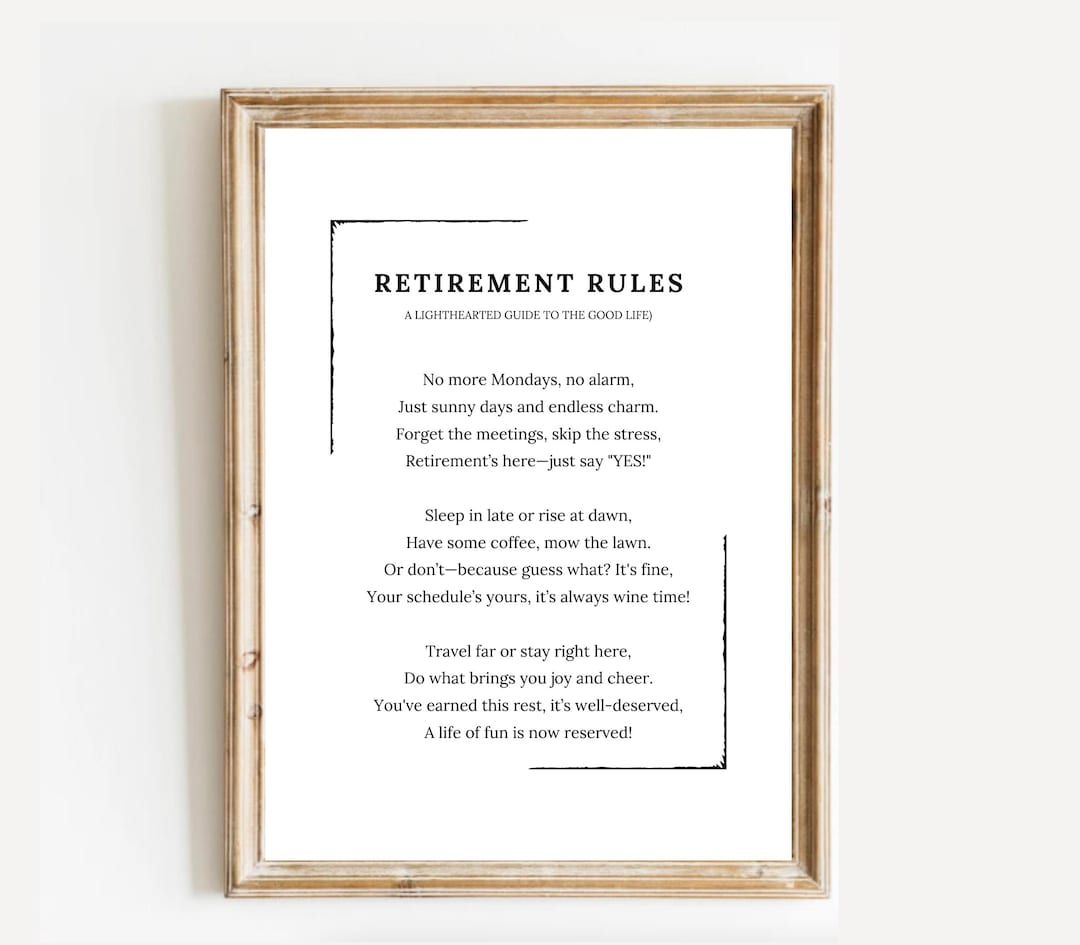 RETIREMENT RULES
A LIGHTHEARTED GUIDE TO THE GOOD LIFE)
No more Mondays, no alarm,
Just sunny days and endless charm.
Forget the meetings, skip the stress,
Retirement’s here—just say "YES!"
Sleep in late or rise at dawn,
Have some coffee, mow the lawn.
Or don’t—because guess what? It's fine,
Your schedule’s yours, it’s always wine time!
Travel far or stay right here,
Do what brings you joy and cheer.
You've earned this rest, it’s well-deserved,
A life of fun is now reserved!